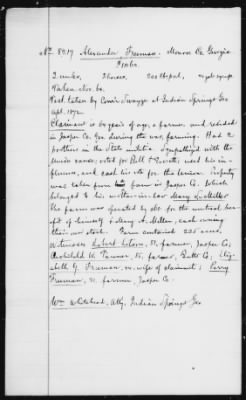 No 8217 Alexander Freeman. Monroe Co Georgia
2 mules, 2 horses, 200 lbs pork, 
Taken Nov. 64.
Test. taken by Com'r Swayze at Indian Springs Geo
Sept. 1872.
Claimant is 60 years of age, a farmer and resided
in Jasper Co. Geo. during the war, farming. Had 2
brothers in the State militia. Sympathized with the
Union cause; voted for Bell & Everett; used his in-
fluence, and cast his vote for the Union. Property
was taken from his farm in Jasper Co. which
belonged to his mother-in-law Mary L. Miller.
The farm was operated by clt for the mutual ben-
efit of himself & Mary A. Miller, each owning
their own stock. Farm contained 225 acres.
Witnesses Robert 51, farmer, Jasper Co;
Archibald W. 51, farmer, Butts Co; Eliz-
abeth G. Freeman, wife of claimant; Perry
Freeman, farmer, Jasper Co.
Wm Whitehead, Atty, Indian Springs Geo